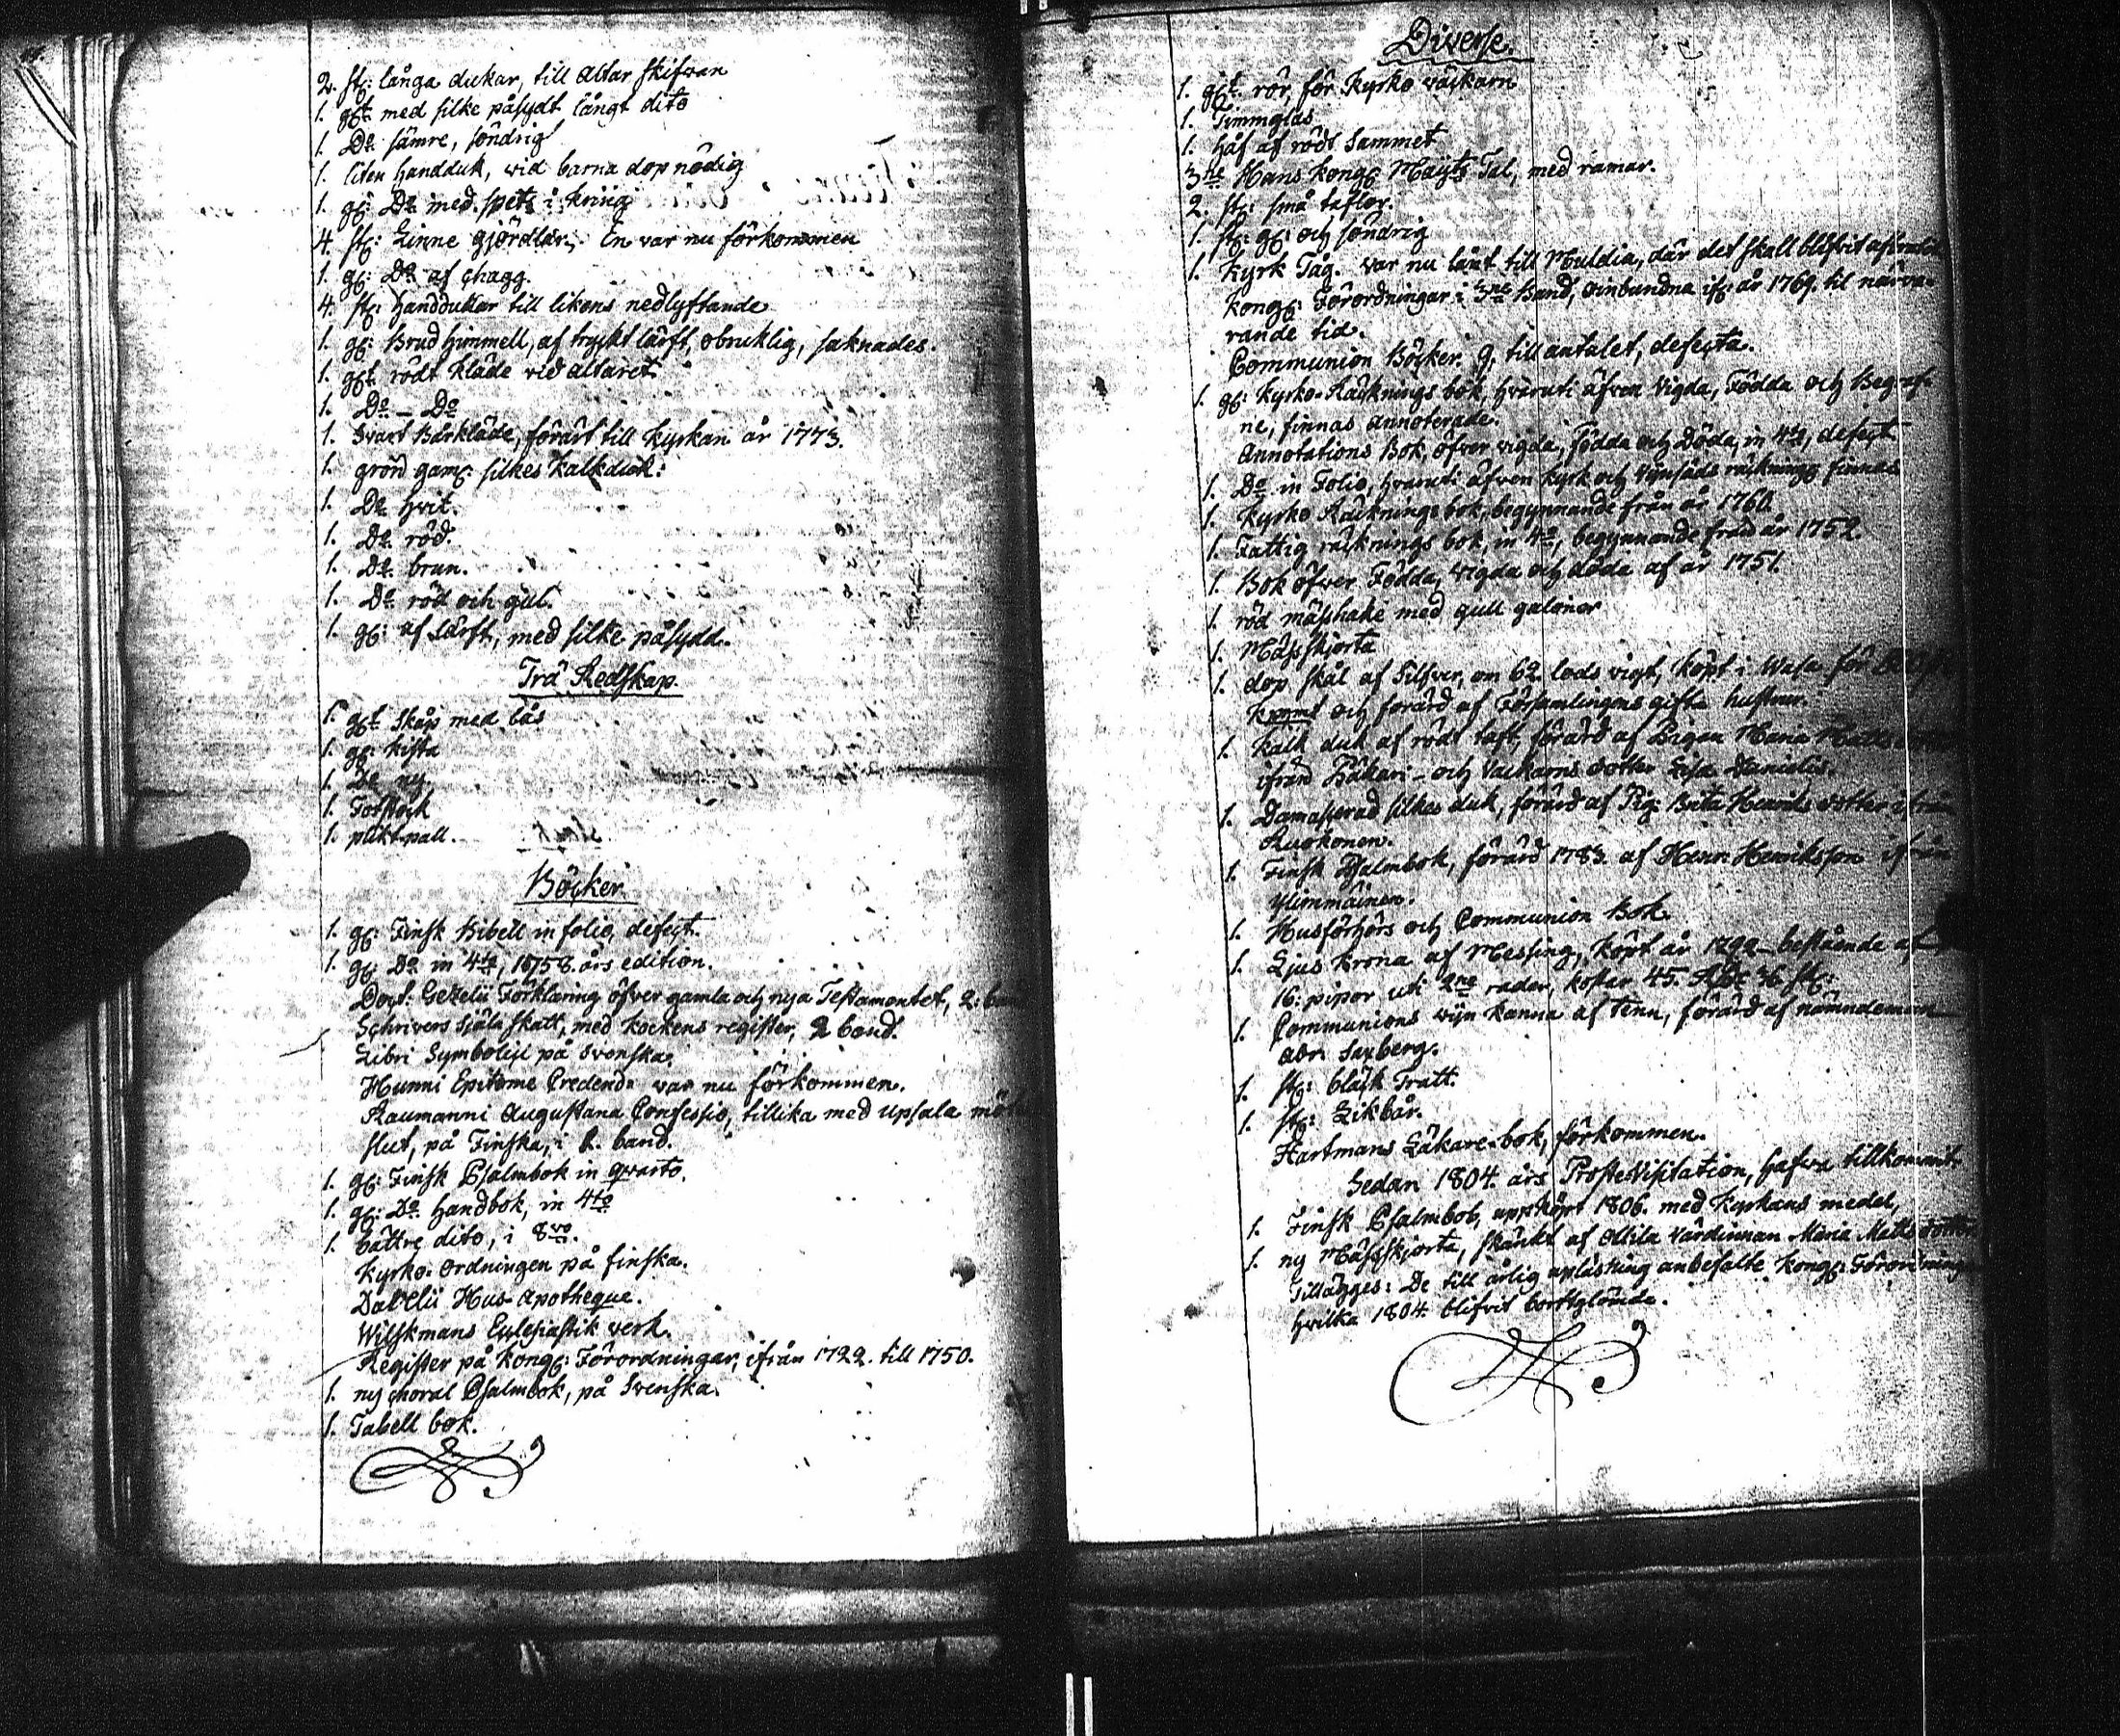 2. st: långa dukar, till altar skifvan
1. g:t med silke påsydt långt dito
1. Do sämre, söndrig
1. liten handduk, vid barna dop nödig
1. g: Do med spets i kring
4. st: Linne gjördlar, En var nu förkommen
1. g: Do af chagg.
4. st: handdukar till likens nedlyftande
1. g: Brud himmell, af tryckt lärft, obruklig, saknades.
1. g:t rödt kläde vid altaret.
1. Do – Do
1. Svart Bårkläde, förärt till Kyrkan år 1773.
1. grön gam: silkes kalkduk:
1. Do hvit.
1. Do röd.
1. Do brun.
1. Do röd och gul.
1. g: af lärft, med silke påsydd.
Trä Redskap.
1. g:t Skåp med lås
1. g: kista
1. Do ny
1. Fotstock
1. plikt-pall.
Böcker.
1. g: Finsk Bibell in folio, defect.
1. g: Do in 4to, 1758. års edition.
Doct: Gezelii Förklaring öfver gamla och nya Testamentet, 2:
Schrivers Själa skatt, med Kockens register, 2 band.
Libri Symbolici på Svenska.
Hunni Epitome Credend: var nu förkommen.
Raumanni Augustana Confessio, tillika med Upsala
slut, på Finska, i 1. band.
1. g: Finsk Psalmbok in qvarto.
1. g: Do Handbok, in 4to
1. bättre dito, i 8vo.
Kyrko-Ordningen på finska.
Dabelii Hus-Apotheque.
Wilskmans Eclesiastik verk.
Register på Kong: Förordningar, ifrån 1722. till 1750.
1. ny choral Psalmbok, på Svenska.
1. Tabell bok.
Diverse.
1. g:t rör, för Kyrko väckarn
1. Timmglas
1. håf af rödt Sammet
3ne Hans Kong: Maij:ts Tal, med ramar.
2. st: små taflor.
1. st: g: och söndrig
1. Kyrk Tåg. var nu lånt till Mouldia, där det skall blifvit
Kong: Förordningar i 3ne Band, oinbundna if: år 1769. til närva-
rande tid.
Communion Böcker. 9. till antalet, defecta.
1. g: Kyrko-Räcknings bok, hvaruti äfven Vigda, Födda och Begraf-
ne, finnas annoterade.
Annotations Bok, öfver vigda, födda och Döda, in 4to, defect
1. Do in Folio, hvaruti äfven Kyrk och räkningg finnas
1. Kyrko Räcknings bok, begynnande från år 1760.
1. Fattig räcknings bok, in 4to, begynnande från år 1752.
1. Bok öfver Födda, vigda och döda af år 1751.
1. röd mässhake med gull galoner
1. Mässkjorta
1. dop skål af Silfver, om 62. lods vigt, köpt i Wasa för
och förärd af Församlingens gifta hustrur.
1. Kalk duk af rödt taft, förärd af Pigan Maria Matts
ifrån och Danielis.
1. Damasserad silkes duk, förärd af Pig: Brita Henriks dotter ifrån
Ruokonen.
1. Finsk Psalmbok, förärd 1783. af Henr: Henriksson ifrån
Ylimmäinen.
1. Husförhörs och Communion Bok.
1. Ljus Krona af Messing, köpt år 1792 – bestående af
16: pipor uti 2ne rader, kostar 45. Rdr 46 sk:
1. Communions vijn kanna af Tenn, förärd af nämndeman
Abr: Saxberg.
1. st: bläck Tratt.
1. st: Likbår.
Hartmans Läkare-bok, förkommen.
Sedan 1804. års ProsteVisitation, hafva tillkommit
1. Finsk Psalmbok, uppköpt 1806. med Kyrkans medel,
1. ny Mässkjorta, skänkt af Ollila Värdinnan Maria Matts dotter
Tillägges: De till årlig upläsning anbefalte Kong: Förordningar
hvilka 1804. blifvit bortglömde.